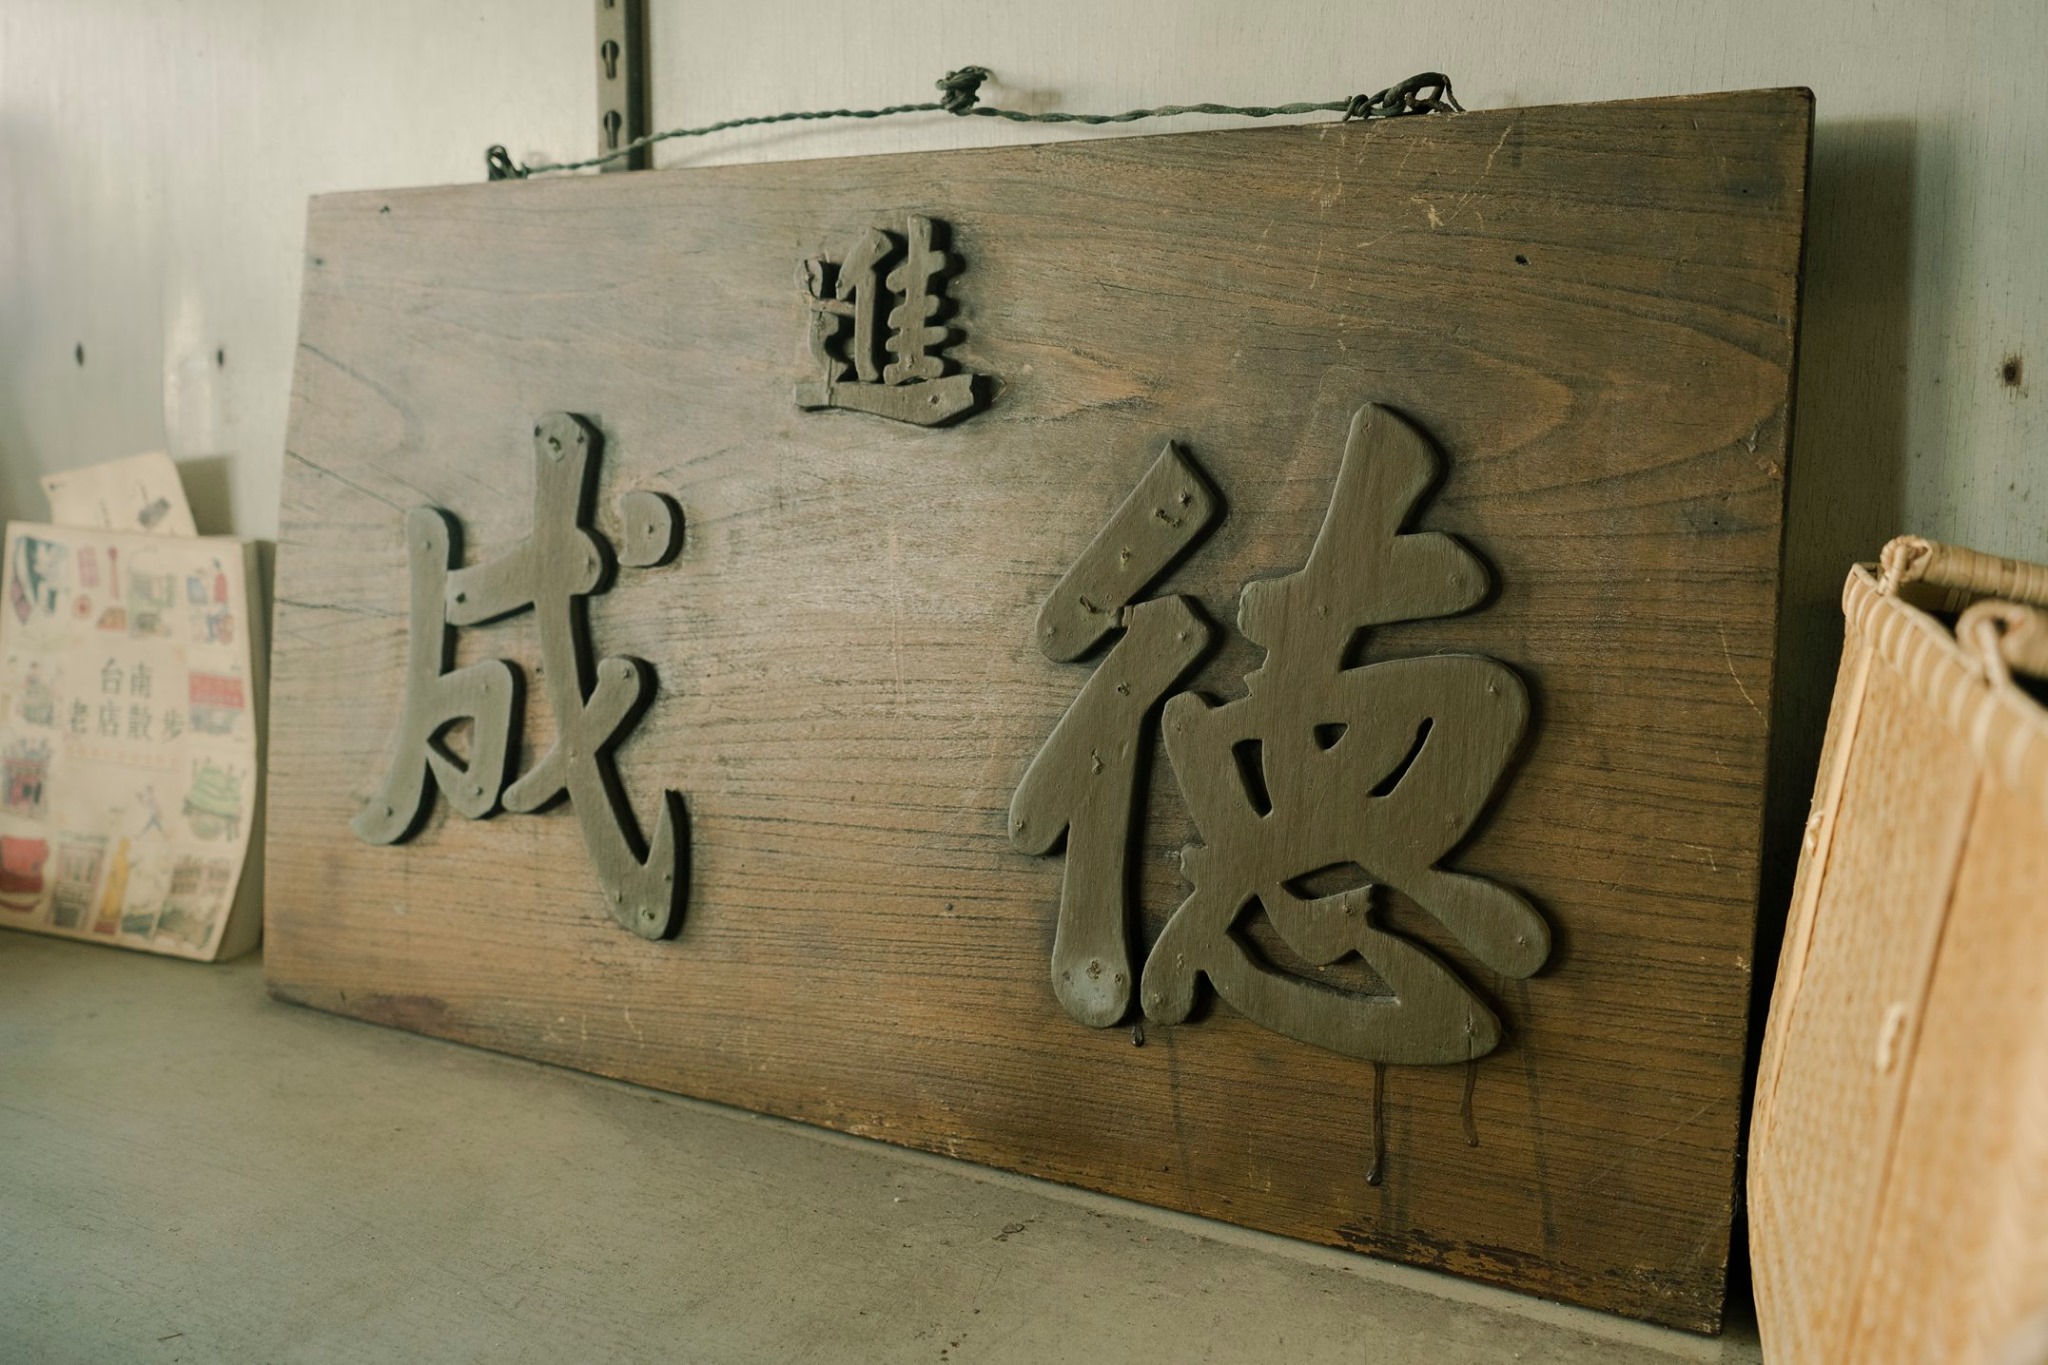 進
成 德
台南
老店散步